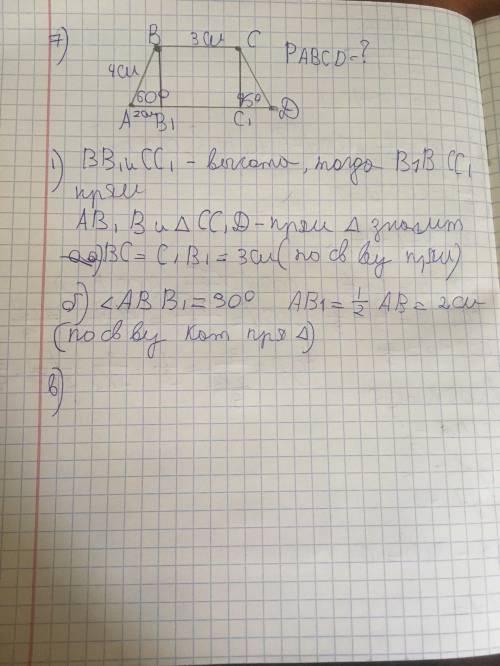 7)
B 3см C
PABCD=?
4см
60°
45°
A 2см B1 C1 D
1) BB1 и CC1 - высота, тогда B1BCC1
прям
AB1B и △CC1D - прям △ значит
а) BC = C1B1 = 3см (по св ву прям)
б) <ABB1 = 30° AB1 = 1/2 AB = 2см
(по св ву кат пря △)
в)